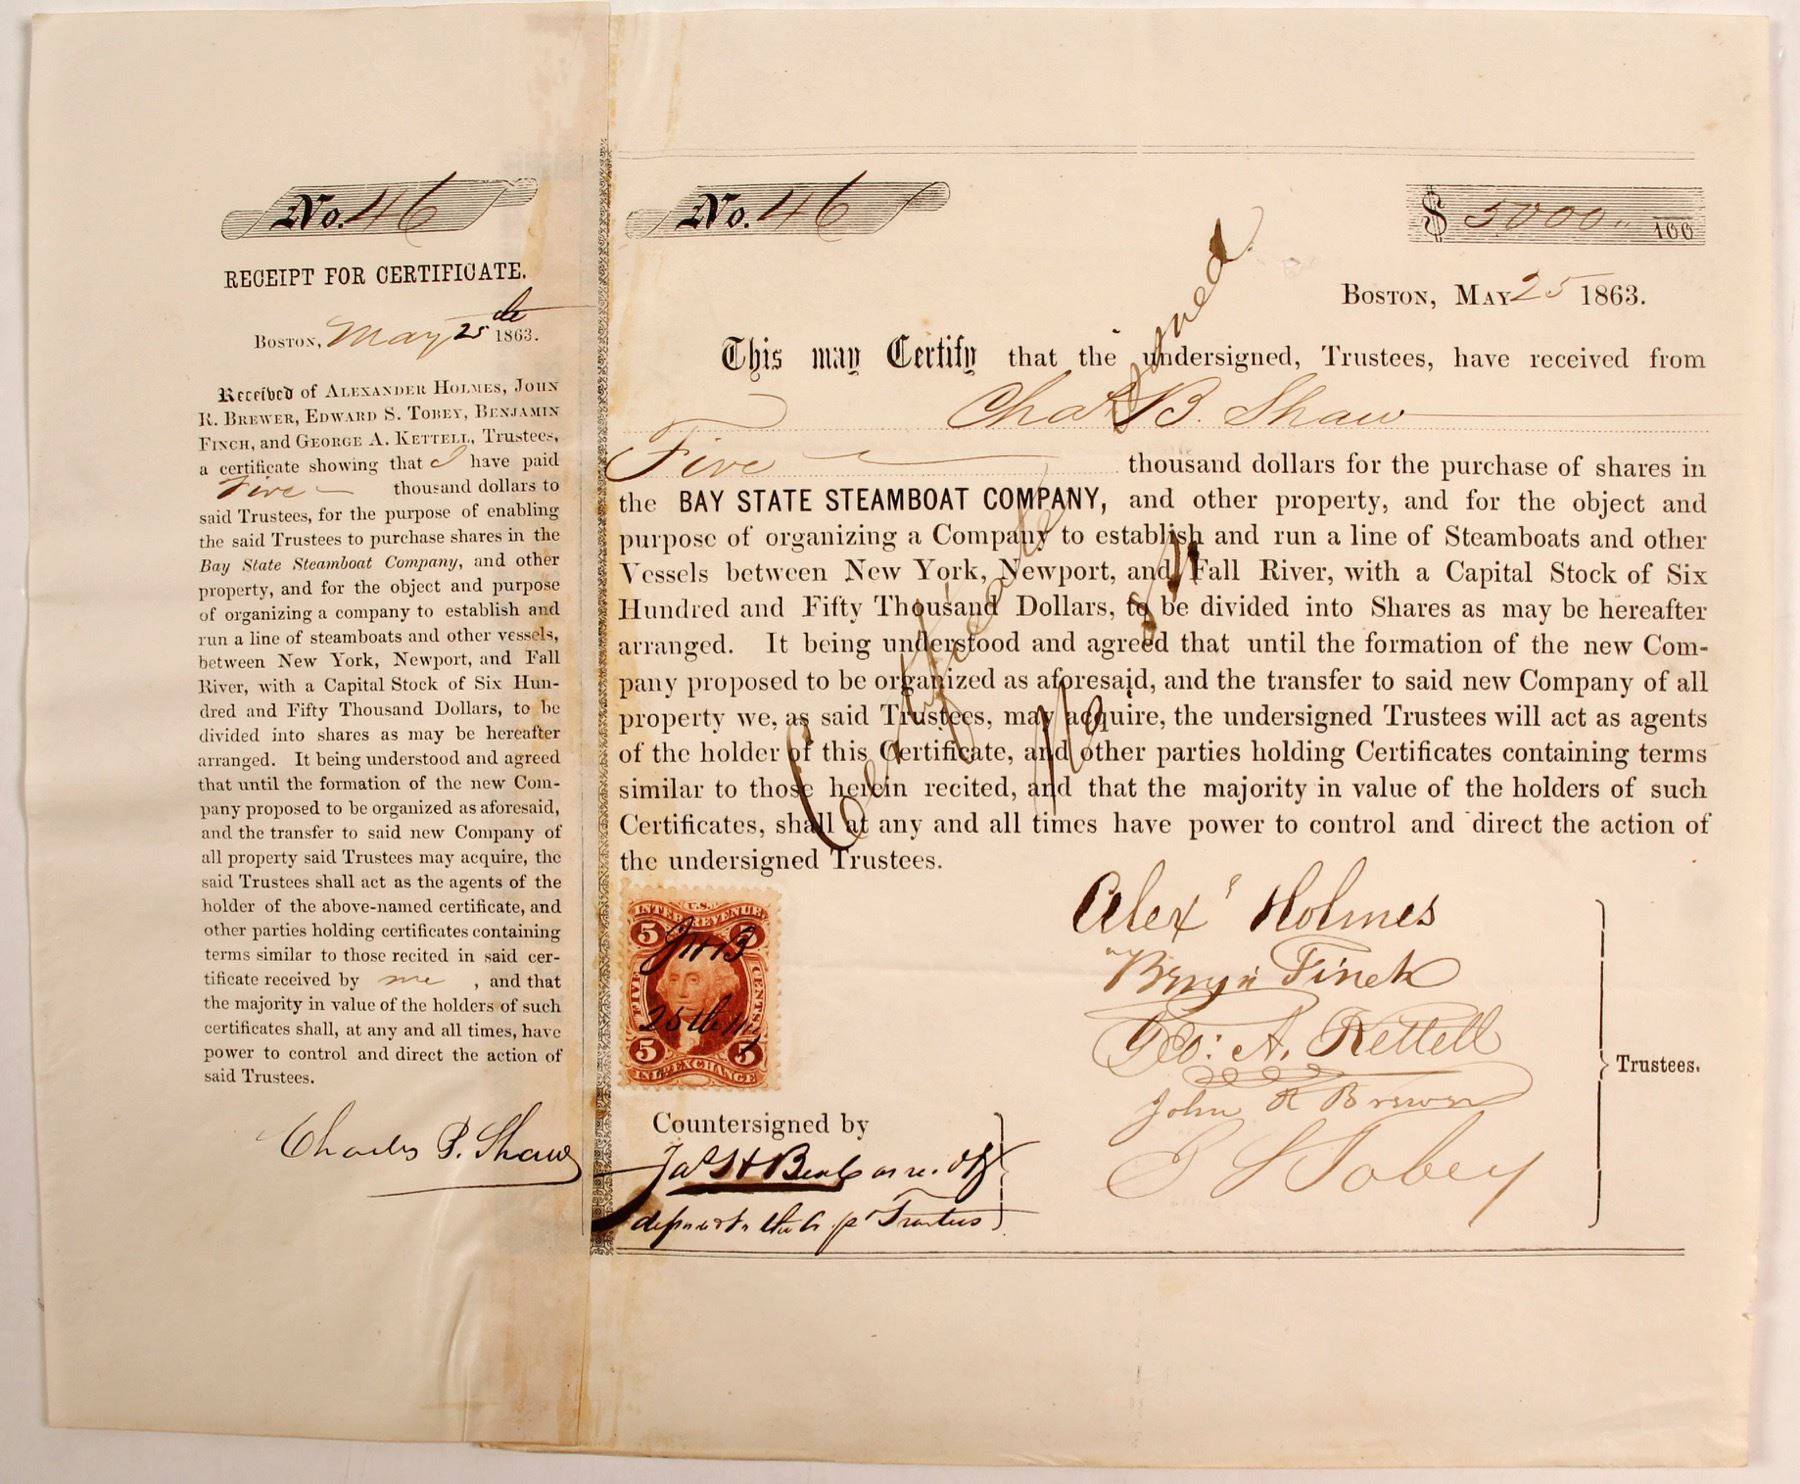 No. 46
RECEIPT FOR CERTIFICATE.
BOSTON, May 25th 1863.
Received of ALEXANDER HOLMES, JOHN
R. BREWER, EDWARD S. TOBEY, BENJAMIN
FINCH, and GEORGE A. KETTELL, Trustees,
a certificate showing that I have paid
Five thousand dollars to
said Trustees, for the purpose of enabling
the said Trustees to purchase shares in the
Bay State Steamboat Company, and other
property, and for the object and purpose
of organizing a company to establish and
run a line of steamboats and other vessels,
between New York, Newport, and Fall
River, with a Capital Stock of Six Hun-
dred and Fifty Thousand Dollars, to be
divided into shares as may be hereafter
arranged. It being understood and agreed
that until the formation of the new Com-
pany proposed to be organized as aforesaid,
and the transfer to said new Company of
all property said Trustees may acquire, the
said Trustees shall act as the agents of the
holder of the above-named certificate, and
other parties holding certificates containing
terms similar to those recited in said cer-
tificate received by me , and that
the majority in value of the holders of such
certificates shall, at any and all times, have
power to control and direct the action of
said Trustees.
Charles B. Shaw
No. 46
$ 5000 100
BOSTON, MAY 25 1863.
This may Certify that the undersigned, Trustees, have received from
Chas B. Shaw
Five thousand dollars for the purchase of shares in
the BAY STATE STEAMBOAT COMPANY, and other property, and for the object and
purpose of organizing a Company to establish and run a line of Steamboats and other
Vessels between New York, Newport, and Fall River, with a Capital Stock of Six
Hundred and Fifty Thousand Dollars, to be divided into Shares as may be hereafter
arranged. It being understood and agreed that until the formation of the new Com-
pany proposed to be organized as aforesaid, and the transfer to said new Company of all
property we, as said Trustees, may acquire, the undersigned Trustees will act as agents
of the holder of this Certificate, and other parties holding Certificates containing terms
similar to those herein recited, and that the majority in value of the holders of such
Certificates, shall at any and all times have power to control and direct the action of
the undersigned Trustees.
Certificate
U.S.
INTER. REVENUE
5 5
FIVE CENTS
5 5
INL. EXCHANGE
JHB
25th
Alexr Holmes
Benjn Finch
Geo: A. Kettell
John R Brewer
E S Tobey
Trustees.
Countersigned by
Jas H Beal
Trustees